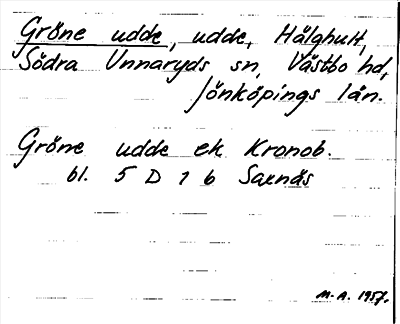 Gröne udde, udde, Hälghult,
Södra Unnaryds sn, Västbo hd,
Jönköpings län.
Gröne udde ek Kronob.
bl. 5 D 1 b Saxnäs
M.A. 1957.